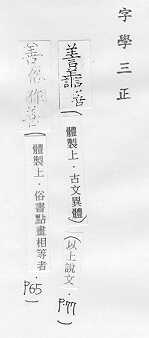 字學三正
譱 善（體製上．古文異體）（以上說文．P.77）
善（體製上．俗書點畫相等者．P65）